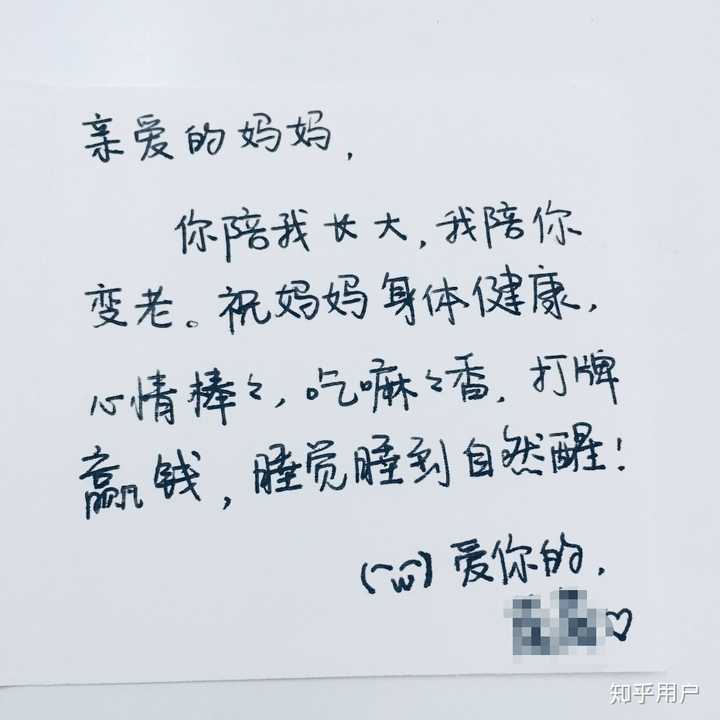 亲爱的妈妈,
你陪我长大,我陪你
变老。祝妈妈身体健康,
心情棒々,吃嘛々香,打牌
赢钱,睡觉睡到自然醒!
(⌒w⌒) 爱你的,
♡
知乎用户